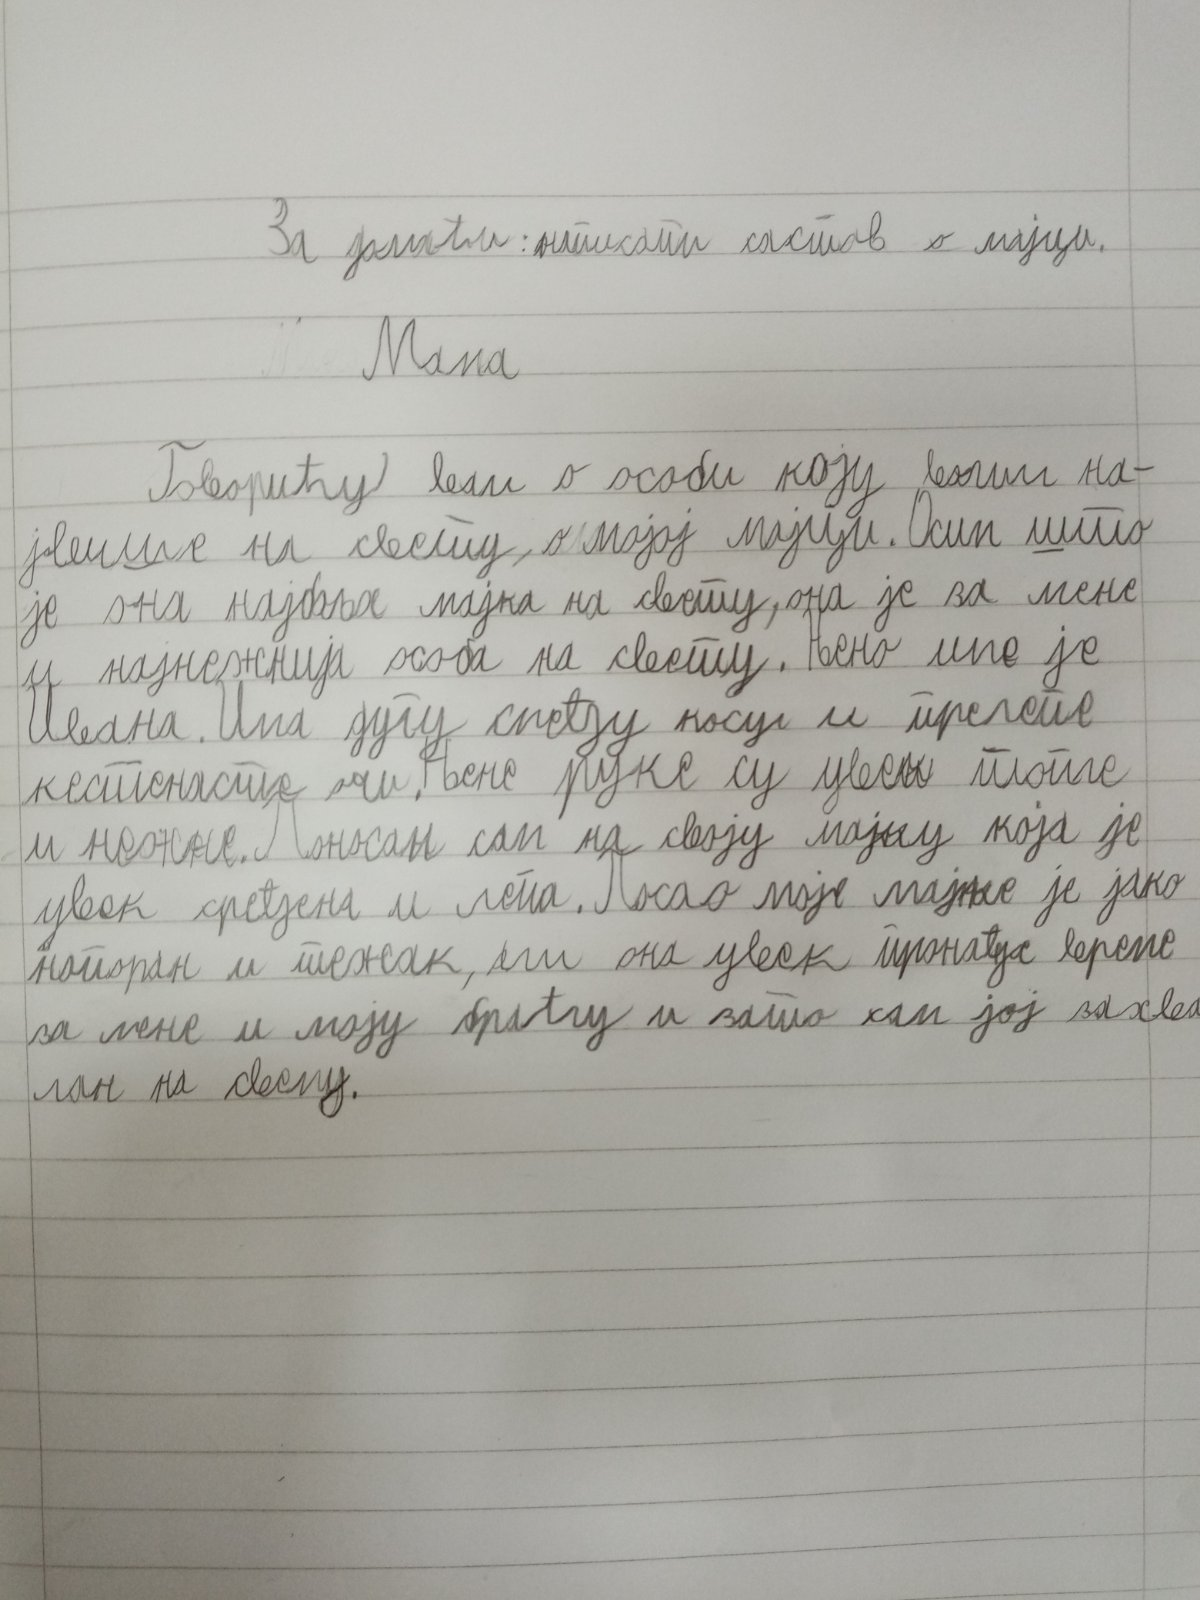 За домаћи: написати састав о мајци.
Мама
Говорићу вам о особи коју волим на-
јвише на свету, о мојој мајци. Осим што
је она најбоља мајка на свету, она је за мене
и најнежнија особа на свету. Њено име је
Ивана. Има дугу смеђу косу и прелепе
кестенасте очи. Њене руке су увек топле
и нежне. Поносан сам на своју мајку која је
увек сређена и лепа. Посао моје мајке је јако
напоран и тежак, али она увек пронађе време
за мене и моју браћу и зато сам јој захва
лан на свему.